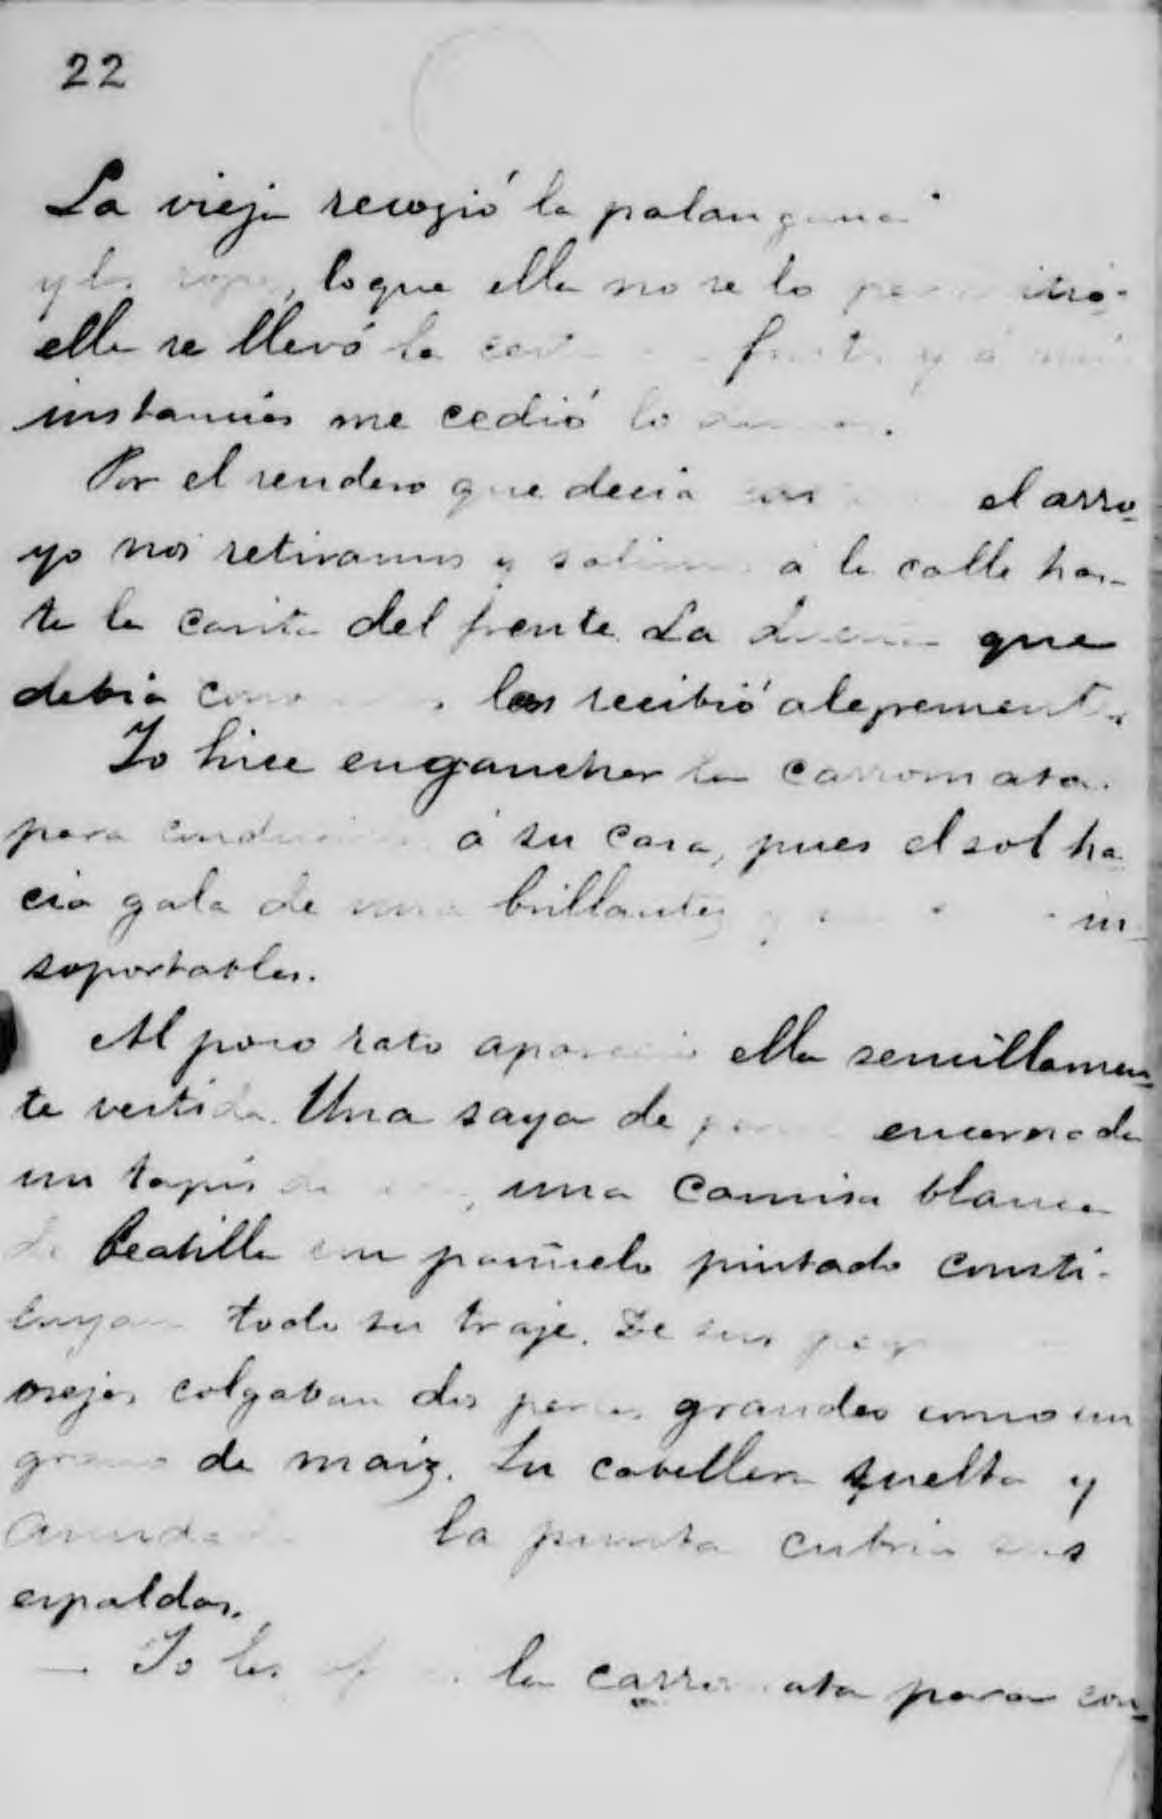 22
La vieja recogió la palangana
y la ropa, lo que ella no se lo permitió.
ella se llevó la y á mis
instancias me cedió lo
Por el sendero que decia el arro-
yo nos retiramos y salimos á la calle has-
ta la casita del frente. La dueña que
debia los recibió alegremente.
Yo hice enganchar la carromata
para á su casa, pues el sol ha-
cia gala de una brillantez in-
soportables.
Al poco rato apareció ella sencillamen-
te vestida. Una saya de encarnada
un tapis de una camisa blanca
de beatilla un pañuelo pintado consti-
tuyan todo su traje. De sus
orejas colgaban dos perlas grandes como un
grano de maiz. Su cabellera suelta y
anudada la punta cubria sus
espaldas.
— Yo les la carromata para con-